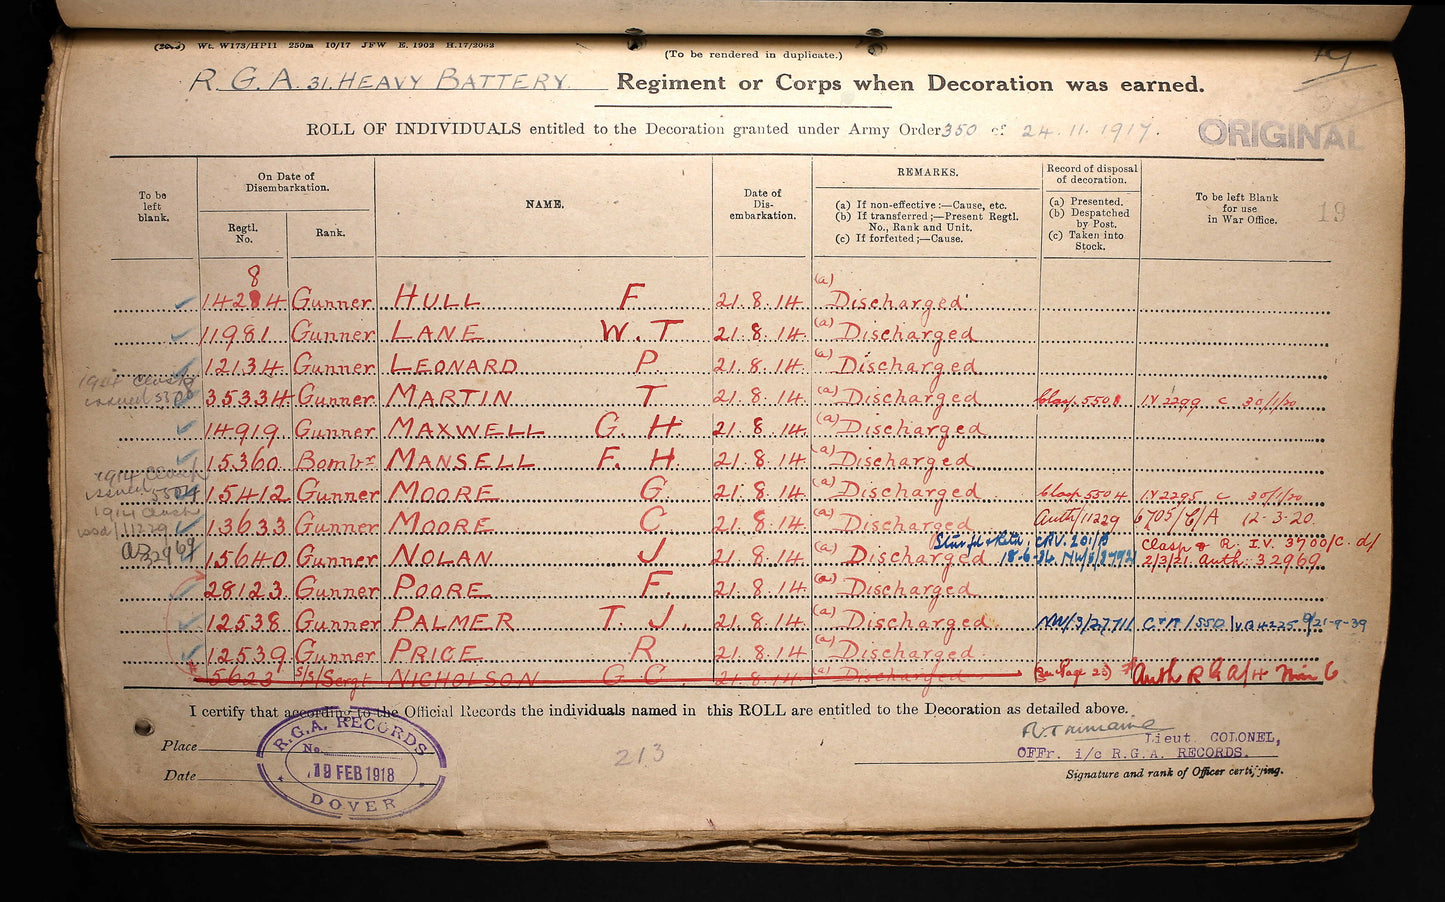 Wt. W173/HP11 250m 10/17 JFW E. 1902 H.17/2062
(To be rendered in duplicate.)
R.G.A. 31. HEAVY BATTERY Regiment or Corps when Decoration was earned.
ROLL OF INDIVIDUALS entitled to the Decoration granted under Army Order 350 of 24.11.1917.
ORIGINAL
19
To be left blank.
On Date of Disembarkation.
Regtl. No.
Rank.
NAME.
Date of Dis-embarkation.
REMARKS.
(a) If non-effective:—Cause, etc.
(b) If transferred;—Present Regtl. No., Rank and Unit.
(c) If forfeited;—Cause.
Record of disposal of decoration.
(a) Presented.
(b) Despatched by Post.
(c) Taken into Stock.
To be left Blank for use in War Office.
8
14284 Gunner HULL F 21.8.14 (a) Discharged
11981 Gunner LANE W.T 21.8.14 (a) Discharged
12134 Gunner LEONARD P. 21.8.14 (a) Discharged
1914 Clasp issued
35334 Gunner MARTIN T 21.8.14 (a) Discharged Clasp 5508 IV 2299 C 30/1/20
14919 Gunner MAXWELL G H. 21.8.14 (a) Discharged
15360 Bombr MANSELL F. H. 21.8.14 (a) Discharged
1914 Clasp issued 5504
15412 Gunner MOORE G. 21.8.14 (a) Discharged Clasp 5504 IV 2295 C 30/1/20
1914 Clasp issd 11229
13633 Gunner MOORE C. 21.8.14 (a) Discharged Auth/11229 6705/C/A 12-3-20.
32969
15640 Gunner NOLAN J. 21.8.14 (a) Discharged 18-6-36 Clasp & R. I.V. 3700/C. d/ 2/3/21 auth. 32969
28123 Gunner POORE F. 21.8.14 (a) Discharged
12538 Gunner PALMER T. J. 21.8.14 (a) Discharged NW/3/27711 21-8-39
12539 Gunner PRICE R 21.8.14 (a) Discharged
5623 S/S/Sergt NICHOLSON G C. 21.8.14 (a) Discharged (See Page 23) Auth R G A/4
I certify that according to the Official Records the individuals named in this ROLL are entitled to the Decoration as detailed above.
Place
Date
R.G.A. RECORDS
No.
19 FEB 1918
DOVER
213
Lieut COLONEL,
OFFr. i/c R.G.A. RECORDS.
Signature and rank of Officer certifying.